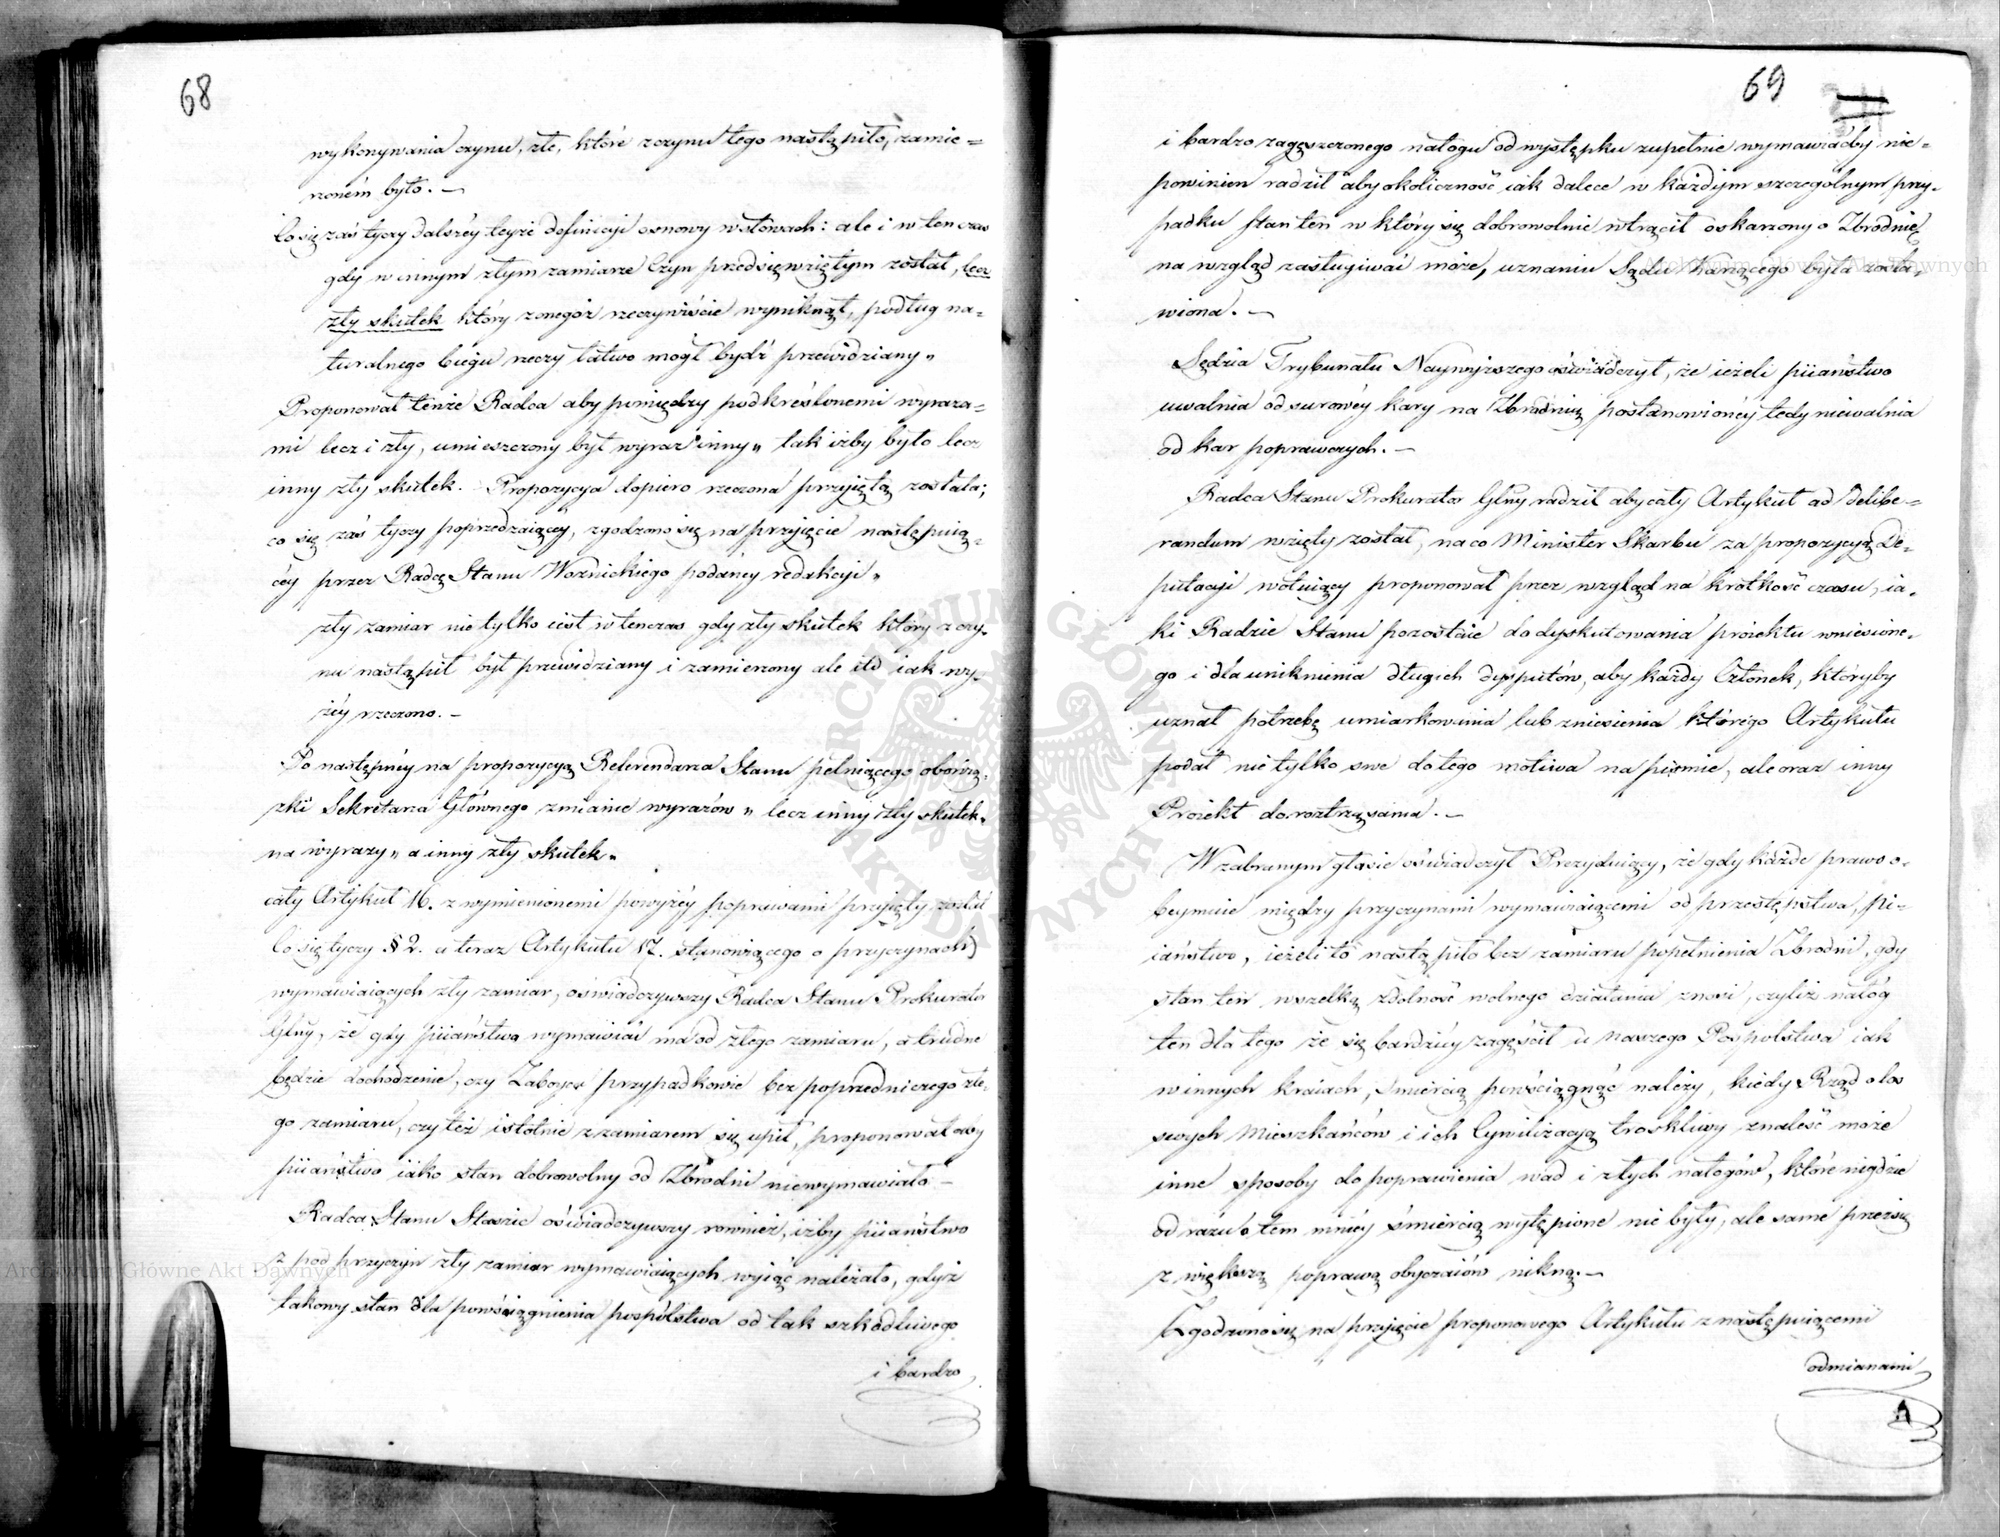 68
wykonywania czynu, złe, które z czynu tego nastąpiło, zamie=
rzoném było. —
Co się zaś tyczy dalszéy teyże definicyi osnowy w słowach: ale i w ten czas
gdy w innym złym zamiarze Czyn przedsięwziętym został, lecz
zły skutek który z onegoż rzeczywiście wyniknął, podług na=
turalnego biegu rzeczy łatwo mógł bydź przewidziany„
Proponował tenże Radca aby pomiędzy podkreślonemi wyraza=
mi lecz i zły, umieszczony był wyraz „inny„ tak iżby było lecz
inny zły skutek. Propozycya dopiero rzeczona przyiętą została;
co się zaś tyczy poprzedzaiącéy, zgodzono się na przyięcie następuią=
céy przez Radcę Stanu Woźnickiego podanéy redakcyi„
zły zamiar nie tylko iest w tenczas gdy zły skutek który z czy=
nu nastąpił był przewidziany i zamierzony ale itd iak wy=
żéy rzeczono. —
Po nastęṕnéy na propozycyą Referendarza Stanu pełniącego obowią=
zki Sekretarza Głównego zmianie wyrazów „ lecz inny zły skutek„
na wyrazy „ a inny zły skutek„
cały Artykuł 16. z wymienionemi powyżéy poprawami przyięty został
Co się tyczy § 2. a teraz Artykułu 17. stanowiącego o przyczynach
wymawiaiących zły zamiar, oświadczywszy Radca Stanu Prokurator
Głny, że gdy piiaństwo wymawiać ma od złego zamiaru, a trudne
będzie dochodzenie, czy Zaboyca przypadkowie bez poprzedniczego złe=
go zamiaru, czy też istotnie z zamiarem się upił, proponował aby
piiaństwo iako stan dobrowolny od Zbrodni niewymawiało —
Radca Stanu Staszic oświadczywszy rownież, iżby piiaństwo
z pod przyczyn zły zamiar wymawiaiących wyiąć należało, gdyż
takowy stan dla powściągnienia pospólstwa od tak szkodliwego
i bardzo
69
i bardzo zagęszczonego nałogu od występku zupełnie wymawiaćby nie=
powinien radził aby okoliczność iak dalece w każdym szczególnym przy=
padku stan ten w który się dobrowolnie wtrącił oskarżony o Zbrodnię
na wzgląd zasługiwać może, uznaniu Sądu Karzącego była zosta=
wiona. —
Sędzia Trybunału Naywyższego oświadczył, że ieżeli piiaństwo
uwalnia od surowéy kary na Zbrodnię postanowionéy tedy nieuwalnia
od kar poprawczych. —
Radca Stanu Prokurator Głny radził aby cały Artykuł ad delibe=
randum wzięty został, na co Minister Skarbu za propozycyą De=
putacyi wotuiący proponował przez wzgląd na krótkość czasu, ia=
ki Radzie Stanu pozostaie do dyskutowania proiektu wniesione=
go i dla uniknienia długich dysputów, aby każdy Członek, któryby
uznał potrzebę umiarkowania lub zniesienia którégo Artykułu
podał nie tylko swe do tego motiwa na piśmie, ale oraz inny
Proiekt do roztrząsania. —
W zabranym głosie oświadczył Prezyduiący, że gdy każde prawo o=
beymuie między przyczynami wymawiaiącemi od przestępstwa, pi=
iaństwo, ieżeli to nastąpiło bez zamiaru popełnienia Zbrodni, gdy
stan ten wszelką zdolność wolnego działania znosi, czyliż nałóg
ten dla tego że się bardziéy zagęścił u naszego Pospólstwa iak
w innych kraiach, śmiercią powściągnąć należy, kiedy Rząd o los
swych Mieszkańców i ich Cywilizacyą troskliwy znaleść może
inne sposoby do poprawienia wad i złych nałogów, które nigdzie
od razu o tem mniéy śmiercią wytępione nie były, ale same przez się
z większą poprawą obyczaiów nikną. —
Zgodzono się na przyięcie proponowego Artykułu z następuiącemi
odmianami